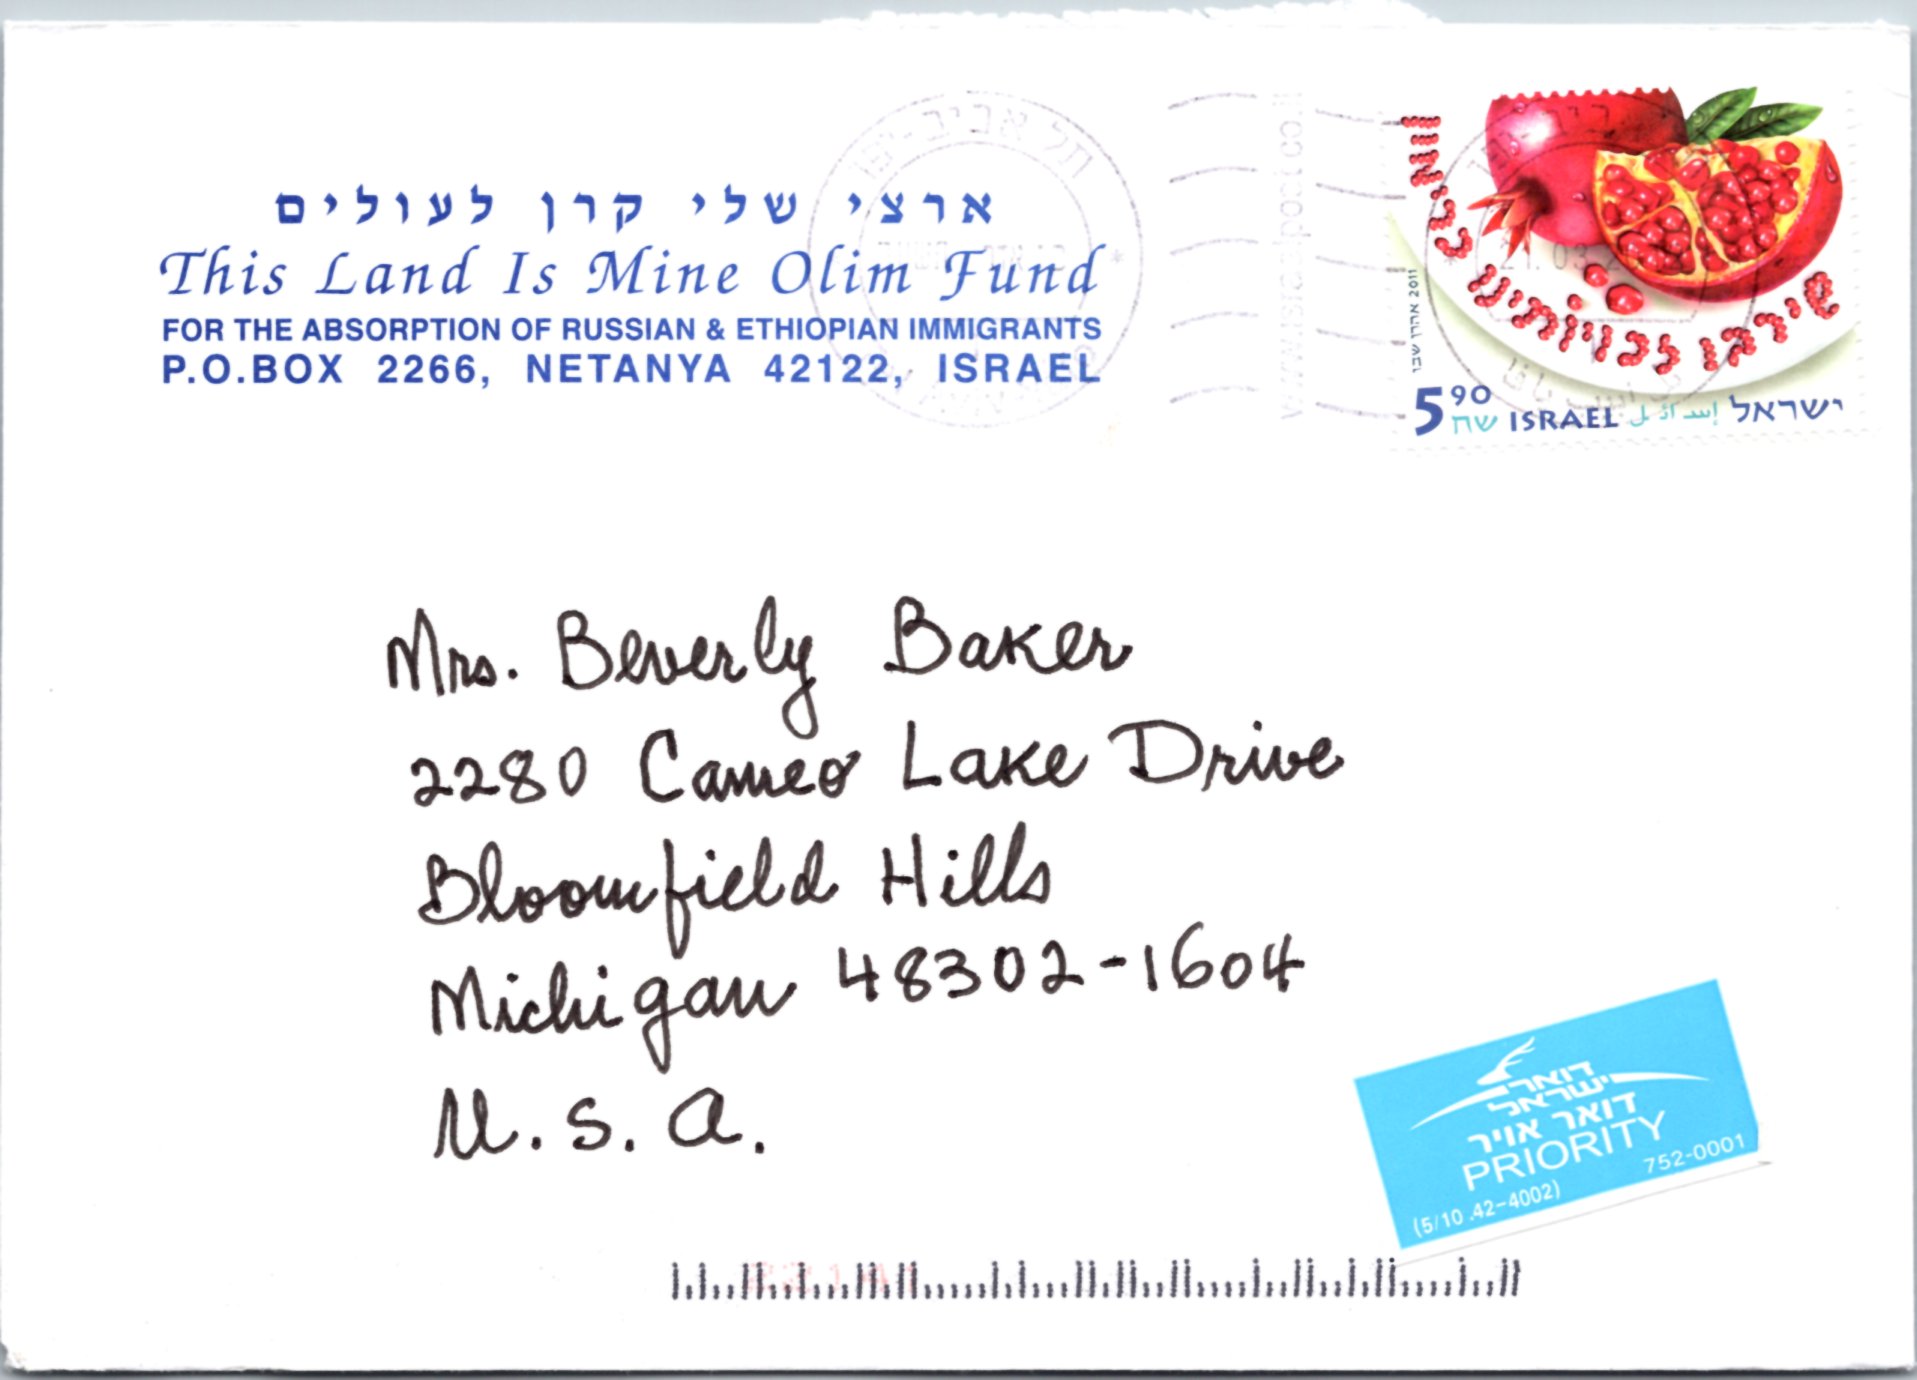 ארצי שלי קרן לעולים
This Land Is Mine Olim Fund
FOR THE ABSORPTION OF RUSSIAN & ETHIOPIAN IMMIGRANTS
P.O.BOX 2266, NETANYA 42122, ISRAEL
תל אביב-יפו
www.israelpost.co.il
21.03.
שירבו זכויותינו
אהרן שבו 2011
5.90 שח ISRAEL إسرائيل ישראל
Mrs. Beverly Baker
2280 Cameo Lake Drive
Bloomfield Hills
Michigan 48302-1604
U.S.A.
דואר
ישראל
דואר אויר
PRIORITY
752-0001
(5/10 .42-4002)